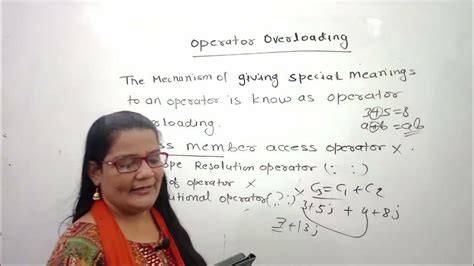 Operator Overloading
The Mechanism of giving special meanings
to an operator is know as operator
rloading.
3+5=8
a+b=ab
ss member access operator ×.
ope Resolution operator (: :)
of operator ×
× C3=C1+C2
itional operator (? :)
3+5j + 4+8j
7+13j